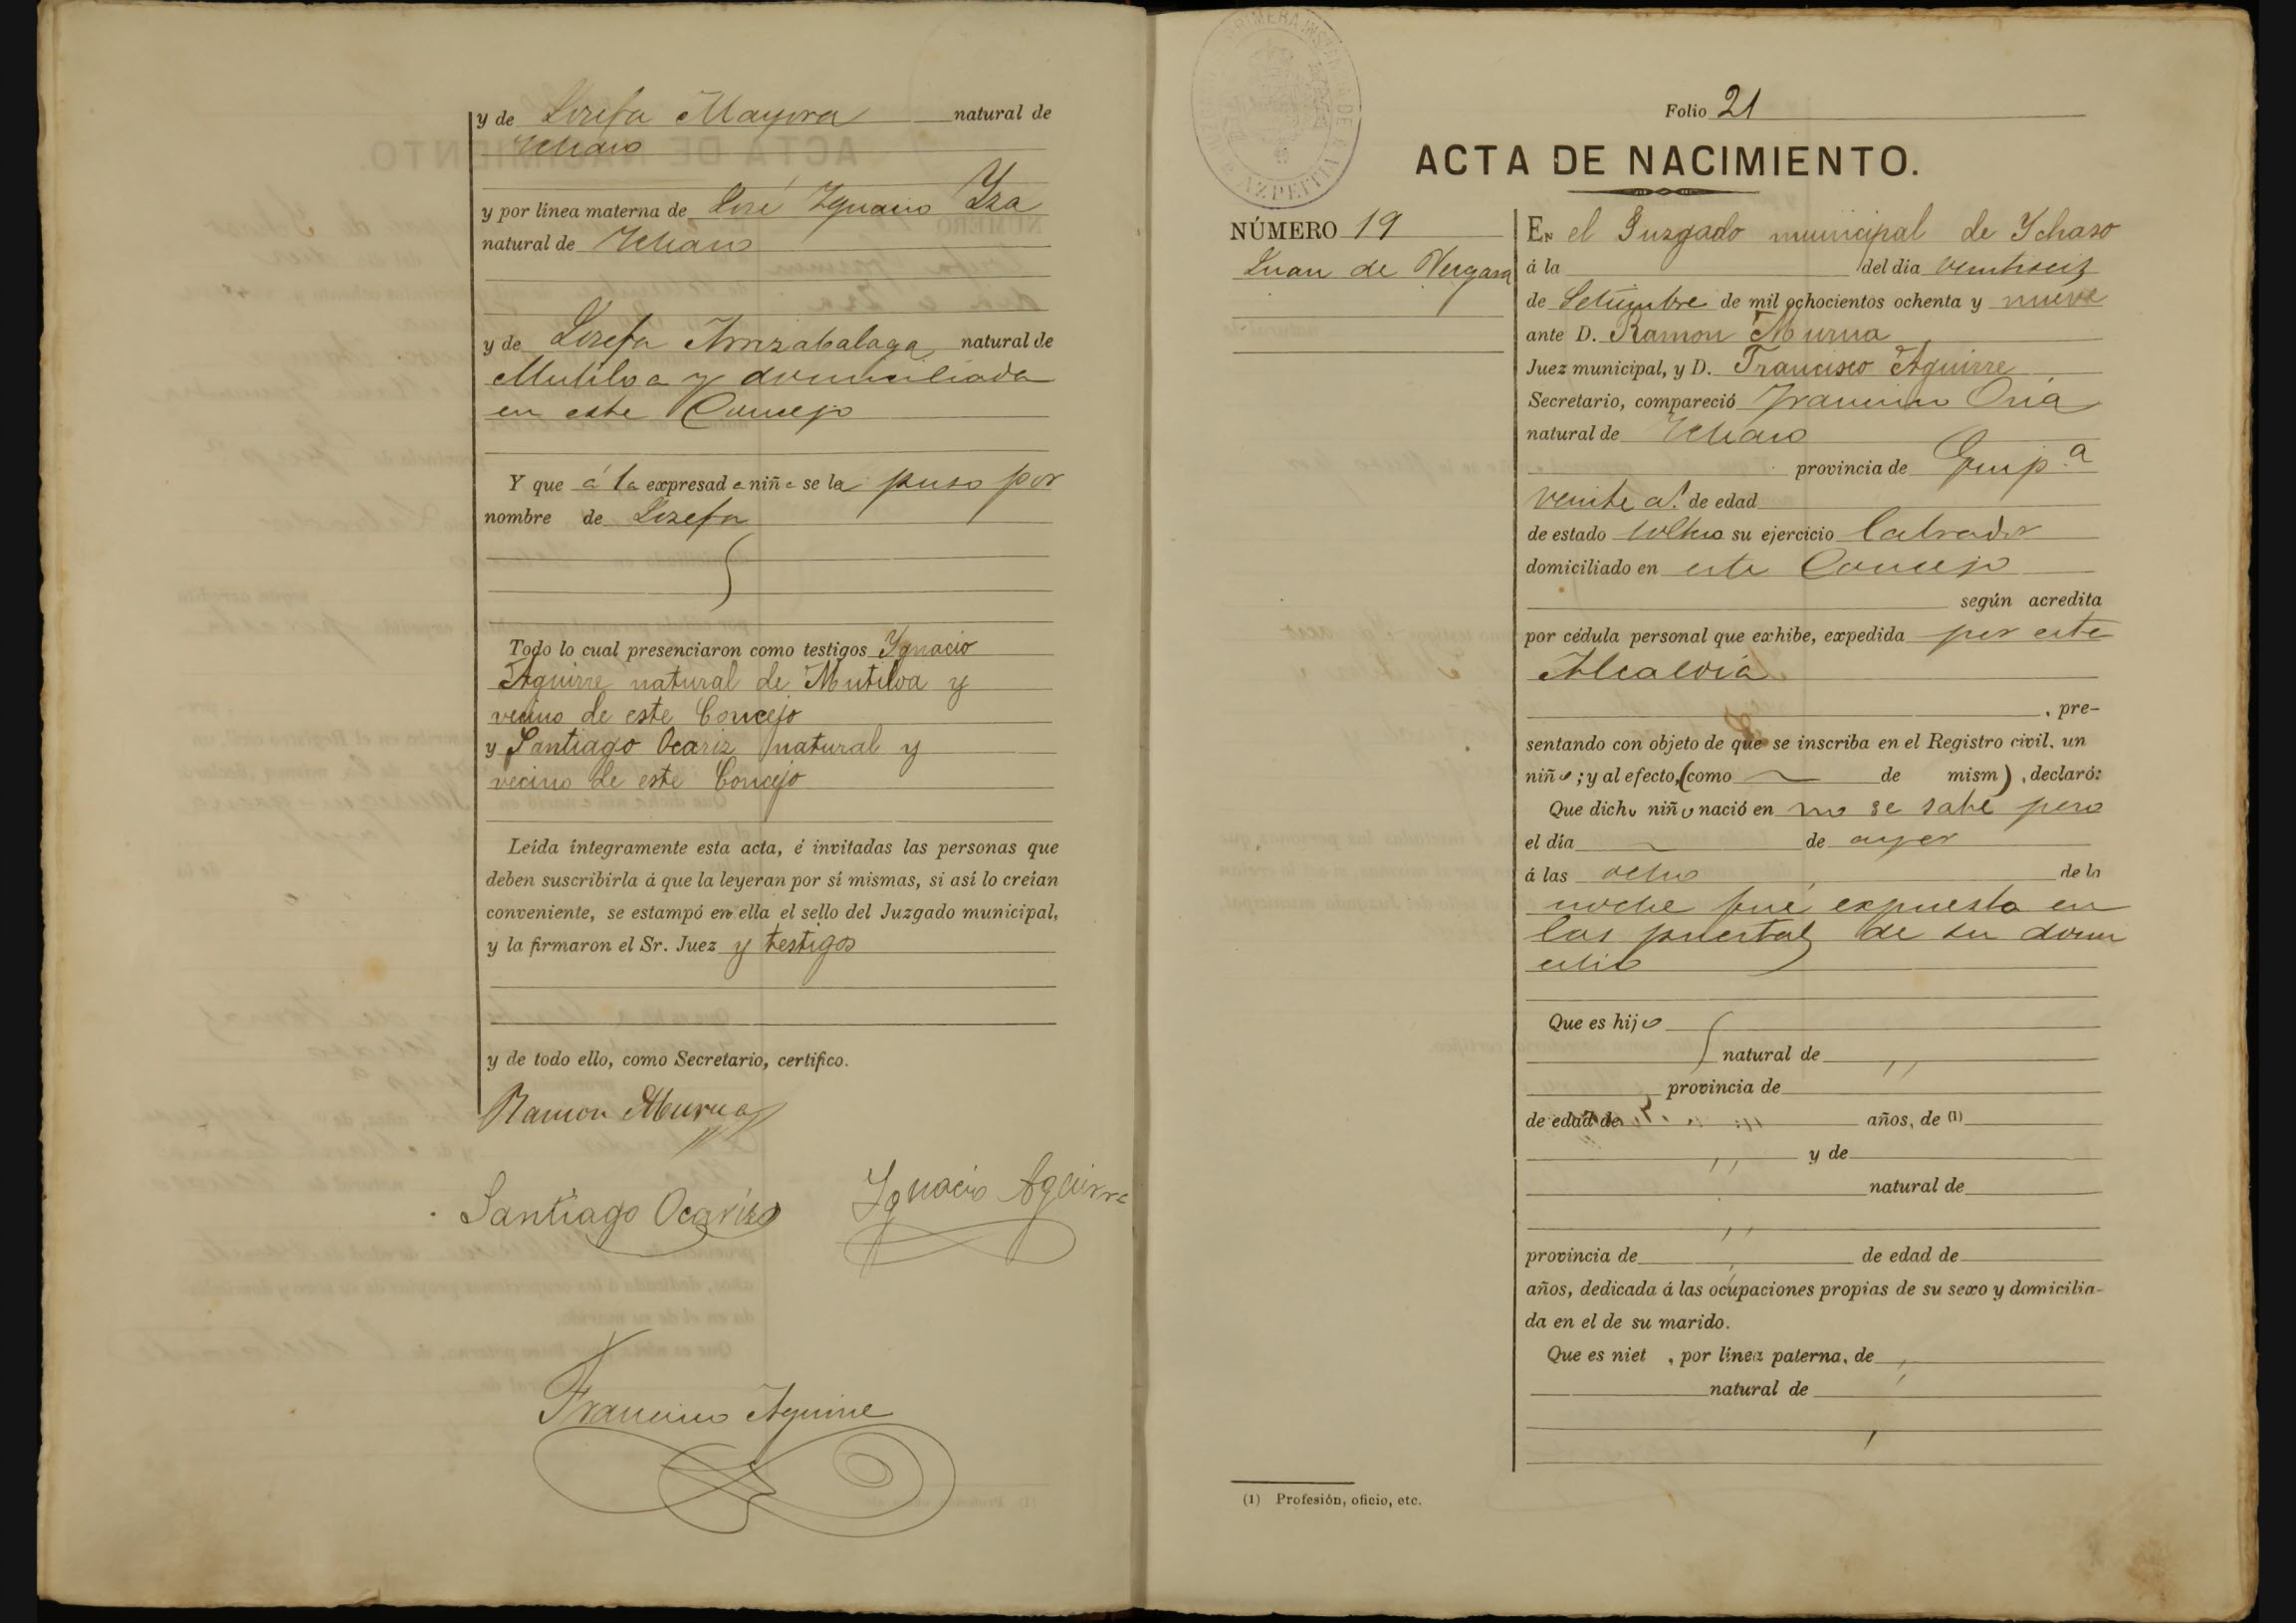 y de Josefa Mayora natural de
Ichaso
y por linea materna de José Ygnacio Yza
natural de Ichaso
y de Josefa Arrizabalaga natural de
Mutiloa y domiciliada
en este Concejo
Y que á la expresada niña se la puso por
nombre de Josefa
Todo lo cual presenciaron como testigos Ygnacio
Aguirre natural de Mutiloa y
vecino de este Concejo
y Santiago Ocariz natural y
vecino de este Concejo
Leída íntegramente esta acta, é invitadas las personas que
deben suscribirla á que la leyeran por sí mismas, si así lo creían
conveniente, se estampó en ella el sello del Juzgado municipal,
y la firmaron el Sr. Juez y testigos
y de todo ello, como Secretario, certifico.
Ramon Murua
Santiago Ocariz
Ygnacio Aguirre
Francisco Aguirre
Folio 21
ACTA DE NACIMIENTO.
NÚMERO 19
Juan de Vergara
En el Juzgado municipal de Ychaso
á la del dia veintiseis
de Setiembre de mil ochocientos ochenta y nueve
ante D. Ramon Murua
Juez municipal, y D. Francisco Aguirre
Secretario, compareció Francisco Oria
natural de Ichaso
provincia de Guip.a
veinte a.s de edad
de estado soltero su ejercicio labrador
domiciliado en este Concejo
según acredita
por cédula personal que exhibe, expedida por esta
Alcaldia
, pre-
sentando con objeto de que se inscriba en el Registro civil, un
niño; y al efecto, (como de mism ), declaró:
Que dicho niño nació en no se sabe pero
el día de ayer
á las ocho de la
noche fué expuesto en
las puertas de su domi
cilio
Que es hijo
natural de
provincia de
de edad de años, de (1)
y de
natural de
provincia de de edad de
años, dedicada á las ocupaciones propias de su sexo y domicilia-
da en el de su marido.
Que es niet , por línea paterna, de
natural de
(1) Profesión, oficio, etc.
AZPEITIA